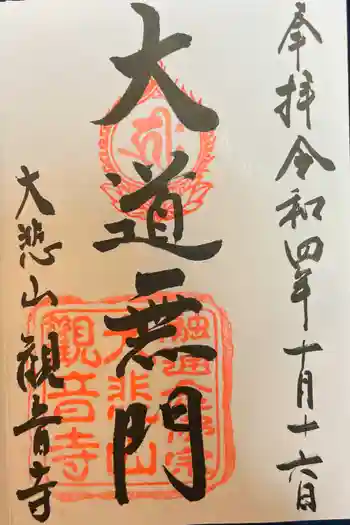 奉拝令和四年十月十六日
大道無門
大悲山観音寺
融通念佛宗
大悲山
観音寺